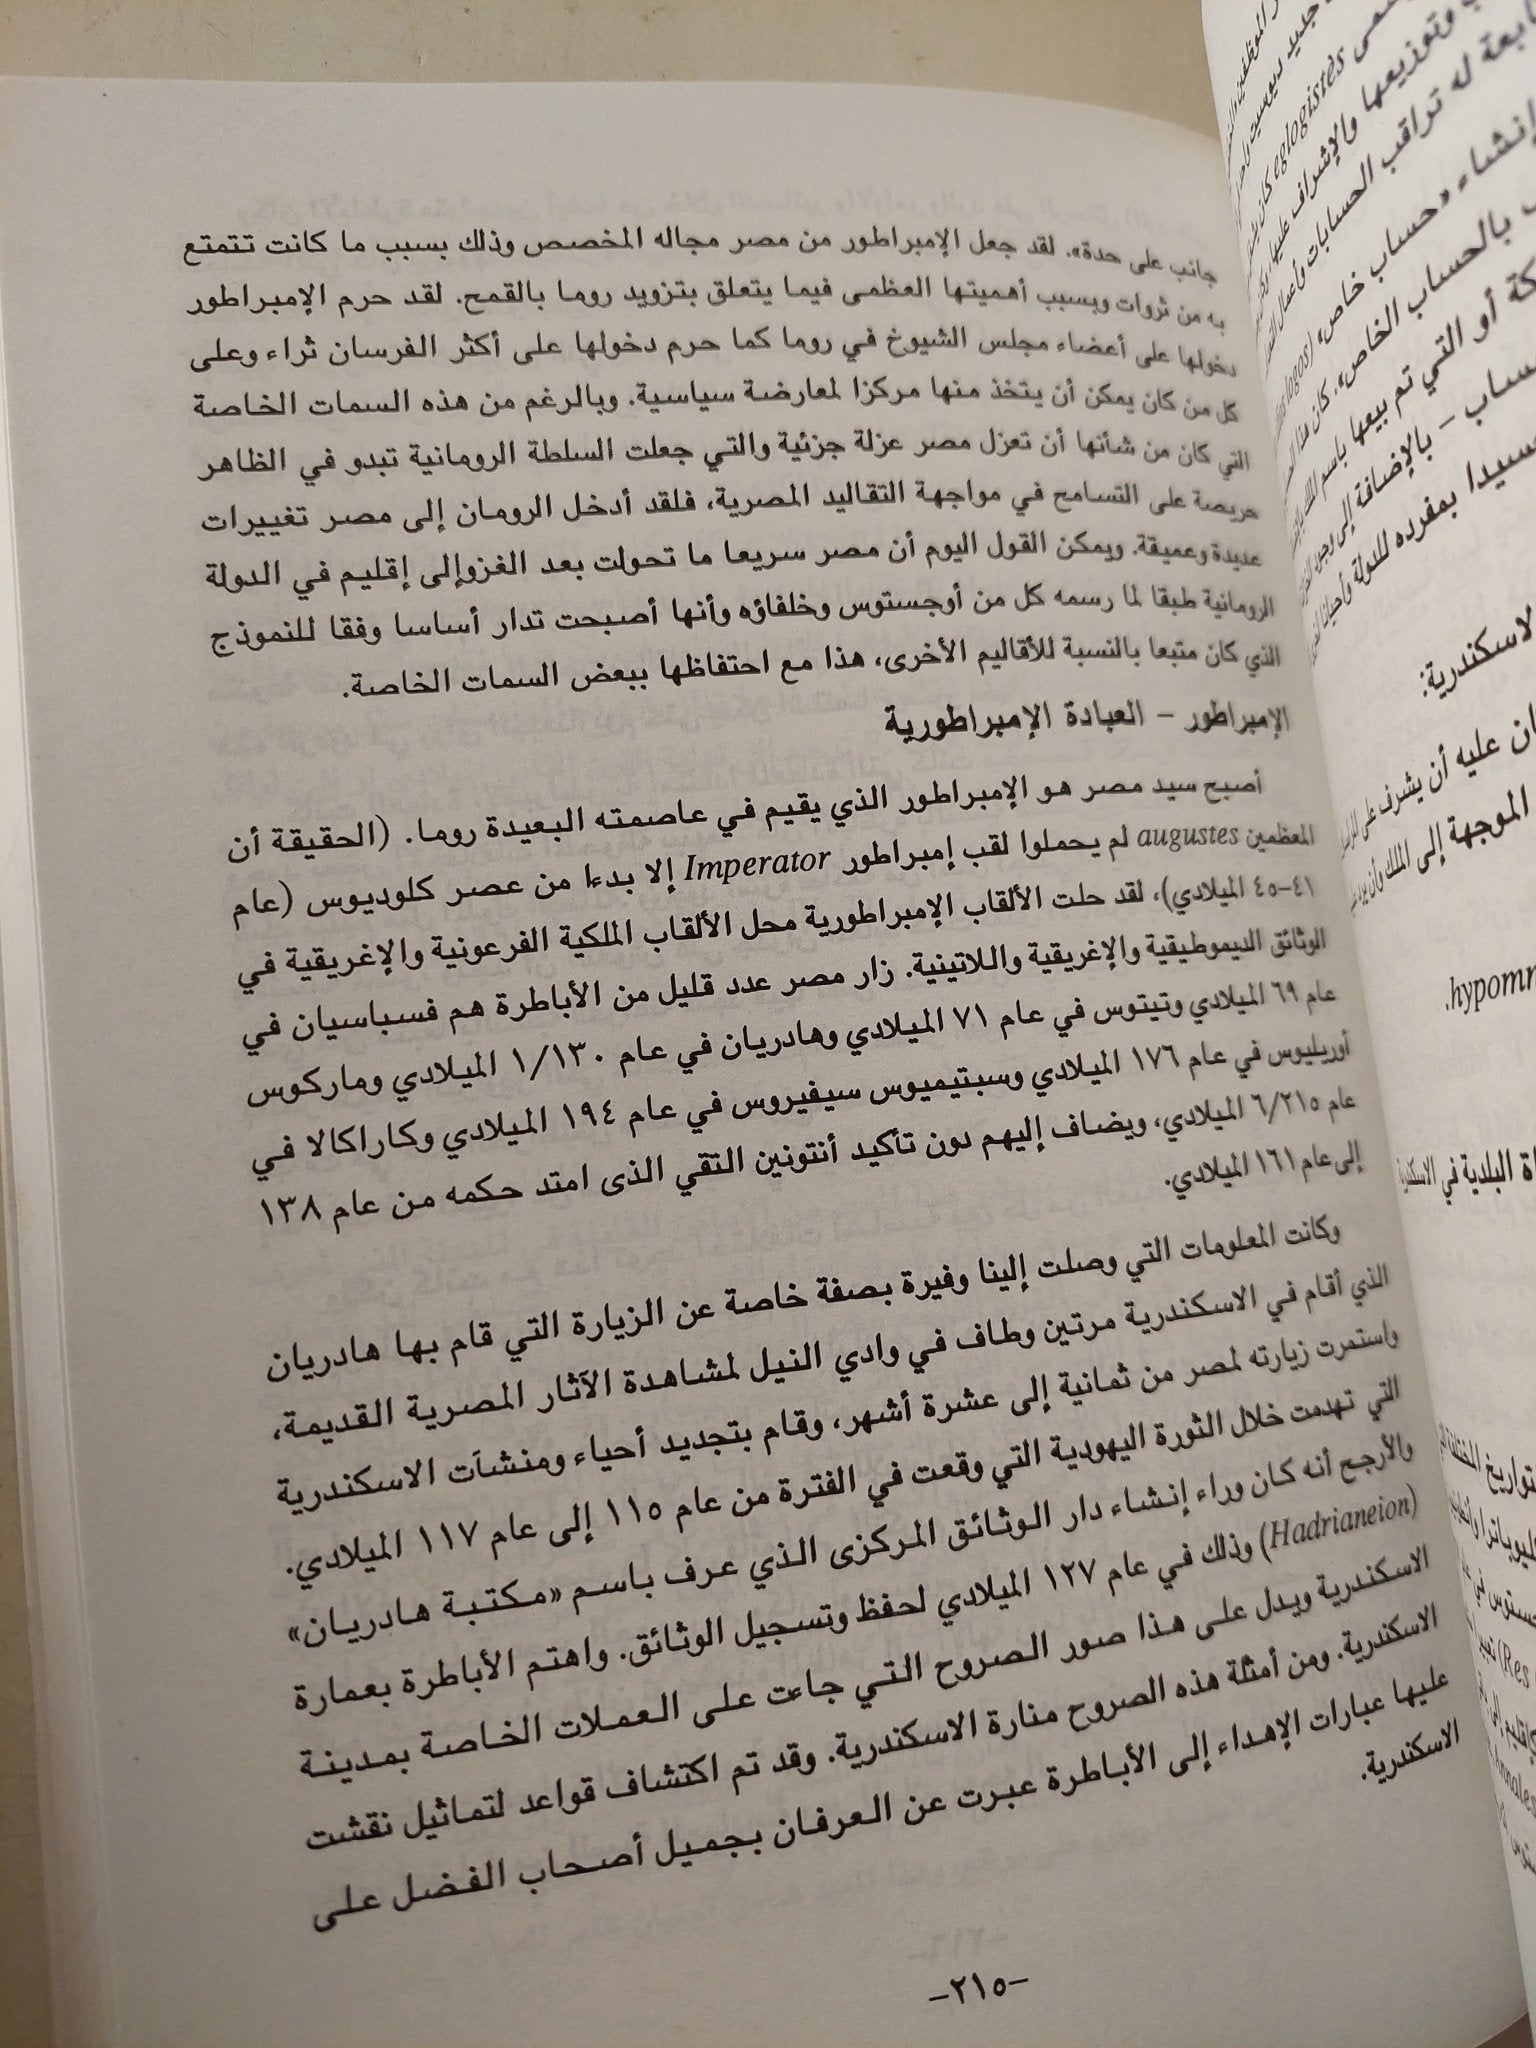 جانب على حدة». لقد جعل الإمبراطور من مصر مجاله المخصص وذلك بسبب ما كانت تتمتع
به من ثروات وبسبب أهميتها العظمى فيما يتعلق بتزويد روما بالقمح. لقد حرم الإمبراطور
دخولها على أعضاء مجلس الشيوخ في روما كما حرم دخولها على أكثر الفرسان ثراء وعلى
كل من كان يمكن أن يتخذ منها مركزا لمعارضة سياسية. وبالرغم من هذه السمات الخاصة
التي كان من شأنها أن تعزل مصر عزلة جزئية والتي جعلت السلطة الرومانية تبدو في الظاهر
حريصة على التسامح في مواجهة التقاليد المصرية، فلقد أدخل الرومان إلى مصر تغييرات
عديدة وعميقة. ويمكن القول اليوم أن مصر سريعا ما تحولت بعد الغزوإلى إقليم في الدولة
الرومانية طبقا لما رسمه كل من أوجستوس وخلفاؤه وأنها أصبحت تدار أساسا وفقا للنموذج
الذي كان متبعا بالنسبة للأقاليم الأخرى، هذا مع احتفاظها ببعض السمات الخاصة.
الإمبراطور – العبادة الإمبراطورية
أصبح سيد مصر هو الإمبراطور الذي يقيم في عاصمته البعيدة روما. (الحقيقة أن
المعظمين augustes لم يحملوا لقب إمبراطور Imperator إلا بدءا من عصر كلوديوس (عام
٤١-٤٥ الميلادي)، لقد حلت الألقاب الإمبراطورية محل الألقاب الملكية الفرعونية والإغريقية في
الوثائق الديموطيقية والإغريقية واللاتينية. زار مصر عدد قليل من الأباطرة هم فسباسيان في
عام ٦٩ الميلادي وتيتوس في عام ٧١ الميلادي وهادريان في عام ١/١٣٠ الميلادي وماركوس
أوريليوس في عام ١٧٦ الميلادي وسبتيميوس سيفيروس في عام ١٩٤ الميلادي وكاراكالا في
عام ٦/٢١٥ الميلادي، ويضاف إليهم دون تأكيد أنتونين التقي الذى امتد حكمه من عام ١٣٨
إلى عام ١٦١ الميلادي.
وكانت المعلومات التي وصلت إلينا وفيرة بصفة خاصة عن الزيارة التي قام بها هادريان
الذي أقام في الاسكندرية مرتين وطاف في وادي النيل لمشاهدة الآثار المصرية القديمة،
واستمرت زيارته لمصر من ثمانية إلى عشرة أشهر، وقام بتجديد أحياء ومنشآت الاسكندرية
التي تهدمت خلال الثورة اليهودية التي وقعت في الفترة من عام ١١٥ إلى عام ١١٧ الميلادي.
والأرجح أنه كان وراء إنشاء دار الوثائق المركزى الذي عرف باسم «مكتبة هادريان»
(Hadrianeion) وذلك في عام ١٢٧ الميلادي لحفظ وتسجيل الوثائق. واهتم الأباطرة بعمارة
الاسكندرية ويدل على هذا صور الصروح التي جاءت على العملات الخاصة بمدينة
الاسكندرية. ومن أمثلة هذه الصروح منارة الاسكندرية. وقد تم اكتشاف قواعد لتماثيل نقشت
عليها عبارات الإهداء إلى الأباطرة عبرت عن العرفان بجميل أصحاب الفضل على
الاسكندرية.
-٢١٥-